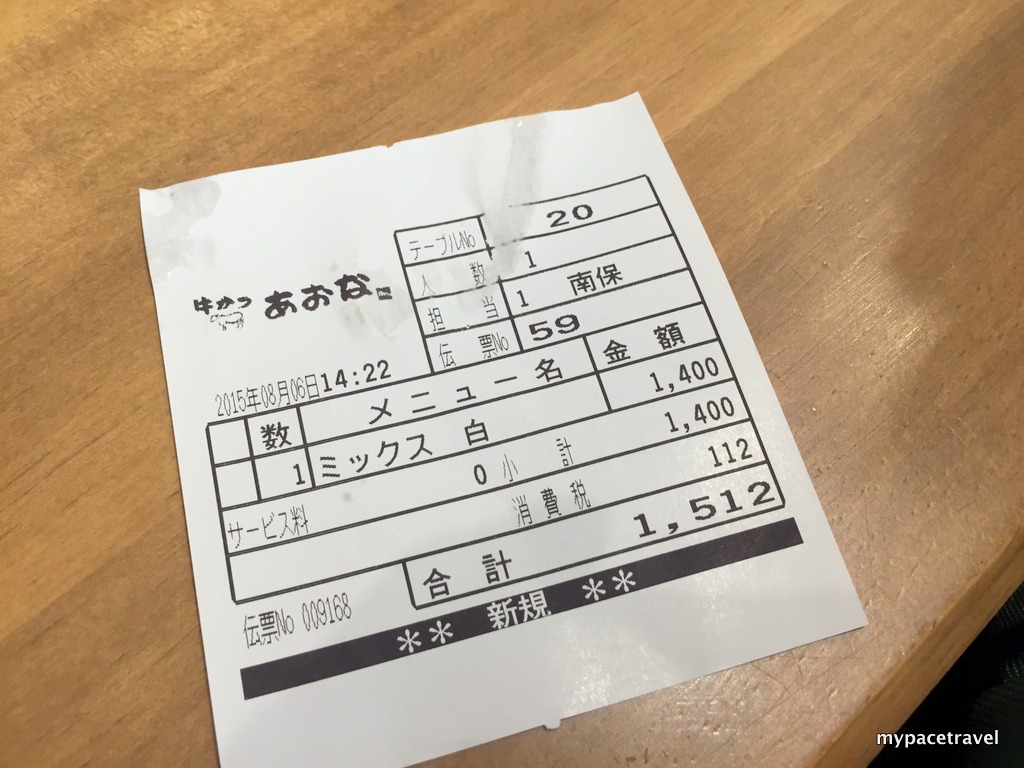 テーブルNo 20
人数 1
牛かつ あおな
担当 1 南保
伝票No 59
2015年08月06日14:22
数 メニュー名 金額
1 ミックス 白 1,400
サービス料 0 小計 1,400
消費税 112
合計 1,512
伝票No 009168
** 新規 **
mypacetravel